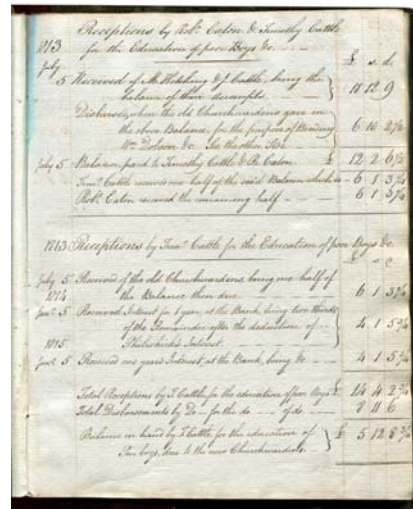 Receptions by Robt. Eaton & Timothy Cattle
1813 for the Education of poor Boys &c.
£ s. d.
July 5 Received of Mr & J. Cattle, being the
balance of their accompts. 18 12 9
Disbursed, when the old Churchwardens gave in
the above Balance, for the purpose of Binding
Wm. Dobson &c. See the other Side 6 10 2½
July 5 Balance paid to Timothy Cattle & R. Eaton £ 12 2 6½
Timy. Cattle receives one half of the said Balance which is 6 1 3¼
Robt. Eaton received the remaining half 6 1 3¼
1813 Receptions by Timy. Cattle for the Education of poor Boys &c.
July 5 Received of the old Churchwardens, being one half of
1814 the Balance then due 6 1 3¼
Jany. 5 Received Interest for 1 year, at the Bank, being two thirds
of the Remainder after the deduction of 4 1 5¾
1815 Interest.
Jany. 5 Received one years Interest, at the Bank, being Do. 4 1 5¾
Total Receptions by T. Cattle, for the education of poor Boys £ 14 4 2¾
Total Disbursements by Do. for the do. of do. 8 11 6
Balance in hand by T. Cattle, for the education of £ 5 12 8¾
Poor boys, due to the new Churchwardens.